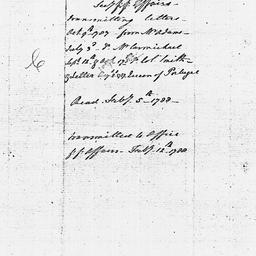 Sec.y f.n Affairs
transmitting letters
Oct.r 9. 1787 from Mr Adams
July 3.d Do Mr Carmichael
Sept. 12 Col. Smith
& letter Queen of Portugal
Read Feb.y 5.th 1788
transmitted to Office
f.n Affairs Feb.y 12.th 1788